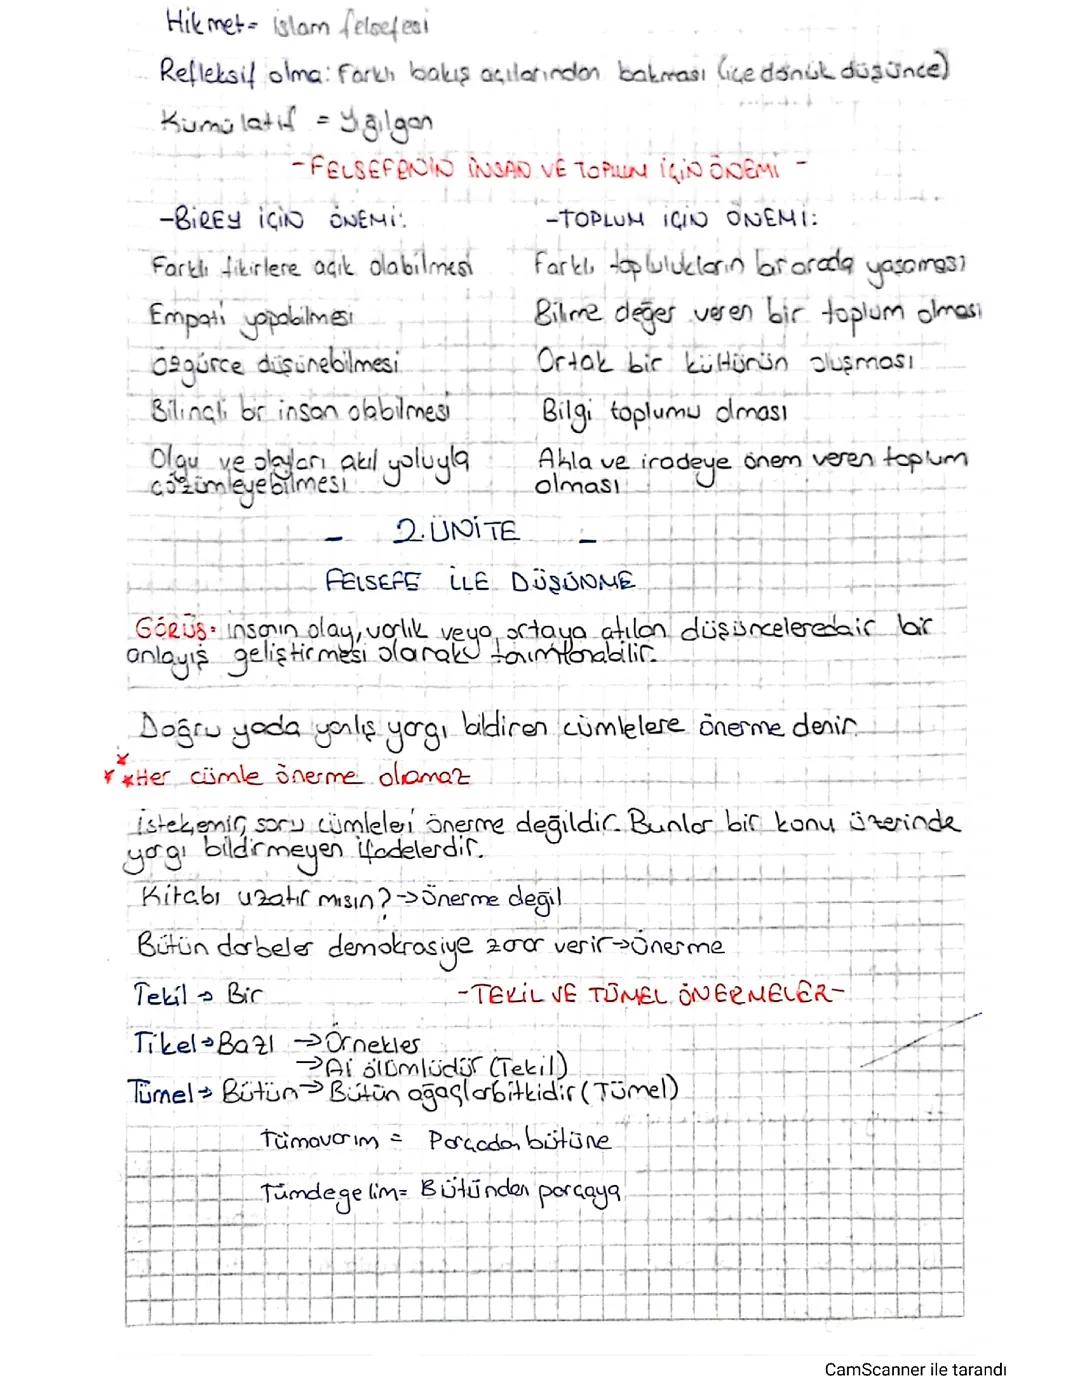 Hikmet= islam felsefesi
Refleksif olma: Farklı bakış açılarından bakması (içe dönük düşünce)
Kümülatif = Yığılgan
-FELSEFENİN İNSAN VE TOPLUM İÇİN ÖNEMİ -
-BİREY İÇİN ÖNEMİ:
Farklı fikirlere açık olabilmesi
Empati yapabilmesi
Özgürce düşünebilmesi
Bilinçli bir insan olabilmesi
Olgu ve olayları akıl yoluyla
çözümleyebilmesi
-TOPLUM İÇİN ÖNEMİ:
Farklı toplulukların bir arada yaşaması
Bilime değer veren bir toplum olması
Ortak bir kültürün oluşması
Bilgi toplumu olması
Akla ve iradeye önem veren toplum
olması
- 2.ÜNİTE -
FELSEFE İLE DÜŞÜNME
GÖRÜŞ: insanın olay, varlık veya ortaya atılan düşüncelere dair bir
anlayış geliştirmesi olarak tanımlanabilir.
Doğru yada yanlış yargı bildiren cümlelere önerme denir.
***Her cümle önerme olamaz
istek, emir, soru cümleleri önerme değildir. Bunlar bir konu üzerinde
yargı bildirmeyen ifadelerdir.
Kitabı uzatır mısın? → Önerme değil
Bütün darbeler demokrasiye zarar verir → Önerme
Tekil → Bir
-TEKİL VE TÜMEL ÖNERMELER-
Tikel → Bazı → Örnekler
→ Ali ölümlüdür (Tekil)
Tümel → Bütün → Bütün ağaçlar bitkidir (Tümel)
Tümevarım = Parçadan bütüne
Tümdegelim= Bütünden parçaya
CamScanner ile tarandı